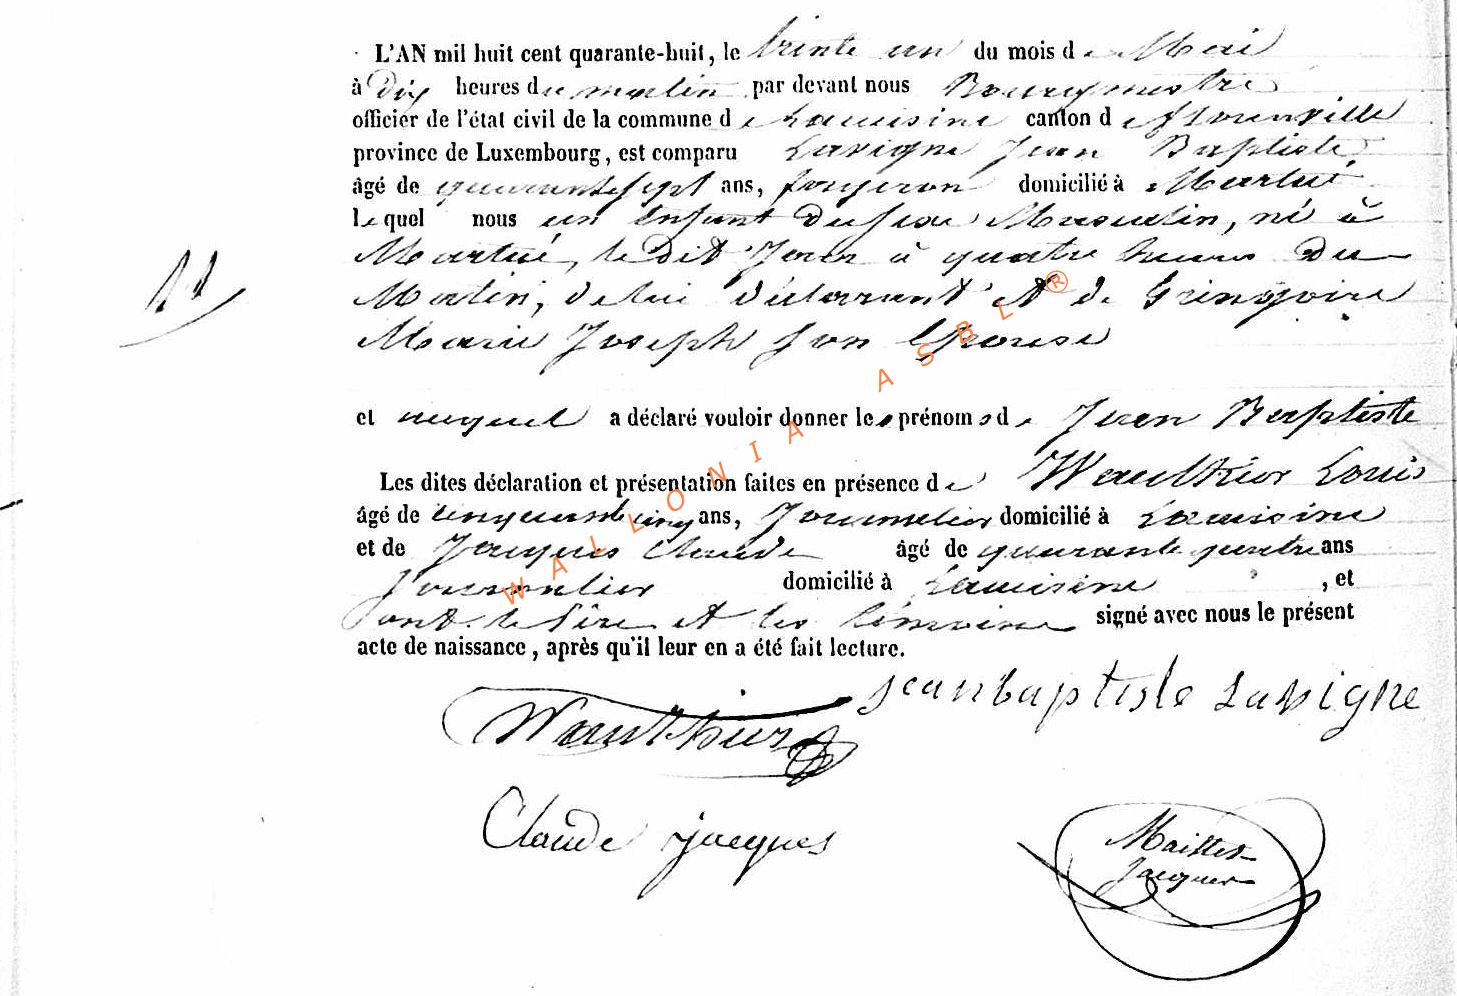 L'AN mil huit cent quarante-huit, le trente un du mois de Mai
à Dix heures du matin par devant nous Bourgmestre
officier de l'état civil de la commune de Lacuisine canton de florenville
province de Luxembourg, est comparu Lavigne Jean Baptiste,
âgé de quarante sept ans, forgeron domicilié à Martué
lequel nous un Enfant Du sexe Masculin, né à
Martué, le Dit Jour à quatre heures Du
Matin, de lui déclarant et de Gringoire
Marie Joseph Son Epouse
11
et auquel a déclaré vouloir donner les prénoms de Jean Baptiste
Les dites déclaration et présentation faites en présence de Waulthier Louis
âgé de cinquante cinq ans, Journalier domicilié à Lacuisine
et de Jacques Claude âgé de quarante quatre ans
Journalier domicilié à Lacuisine , et
ont le Père et les témoins signé avec nous le présent
acte de naissance, après qu'il leur en a été fait lecture.
jeanbaptiste Lavigne
Waulthier
Claude jacques
Jacques
WALLONIA ASBL ®